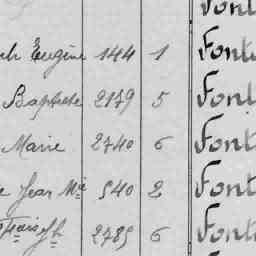 Font
Eugène 144 1 Font
Baptiste 2179 5 Font
Marie 2740 6 Font
Jean Mie 540 2 Font
2785 6 Font